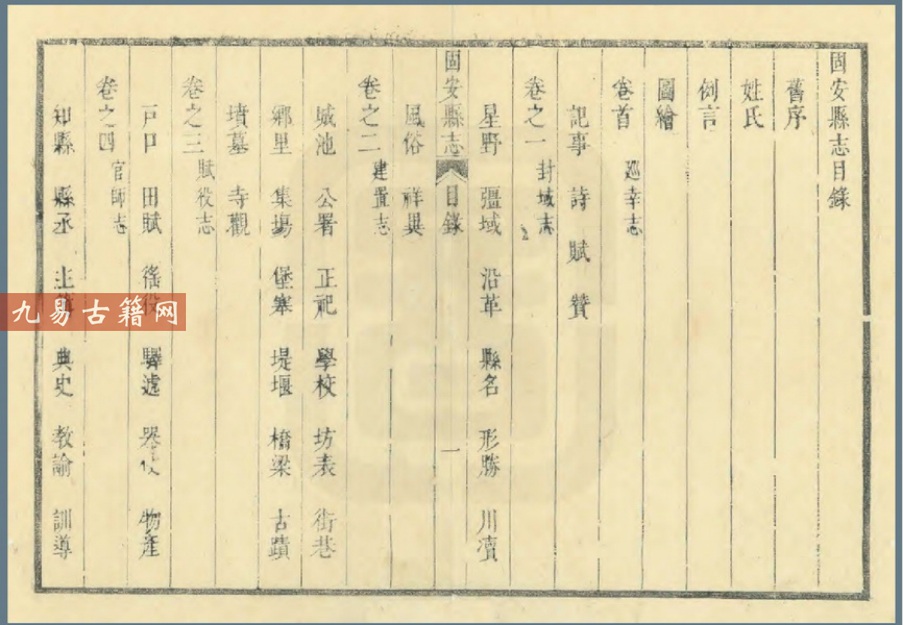 固安縣志目錄
舊序
姓氏
例言
圖繪
卷首 巡幸志
記事 詩 賦 贊
卷之一 封域志
星野 疆域 沿革 縣名 形勝 川瀆
固安縣志 目錄 一
風俗 祥異
卷之二 建置志
城池 公署 正祀 學校 坊表 街巷
鄉里 集場 堡寨 堤堰 橋梁 古蹟
墳墓 寺觀
卷之三 賦役志
戸口 田賦 徭役 驛遞 物產
卷之四 官師志
知縣 縣丞 主 典史 教諭 訓導
九易古籍网